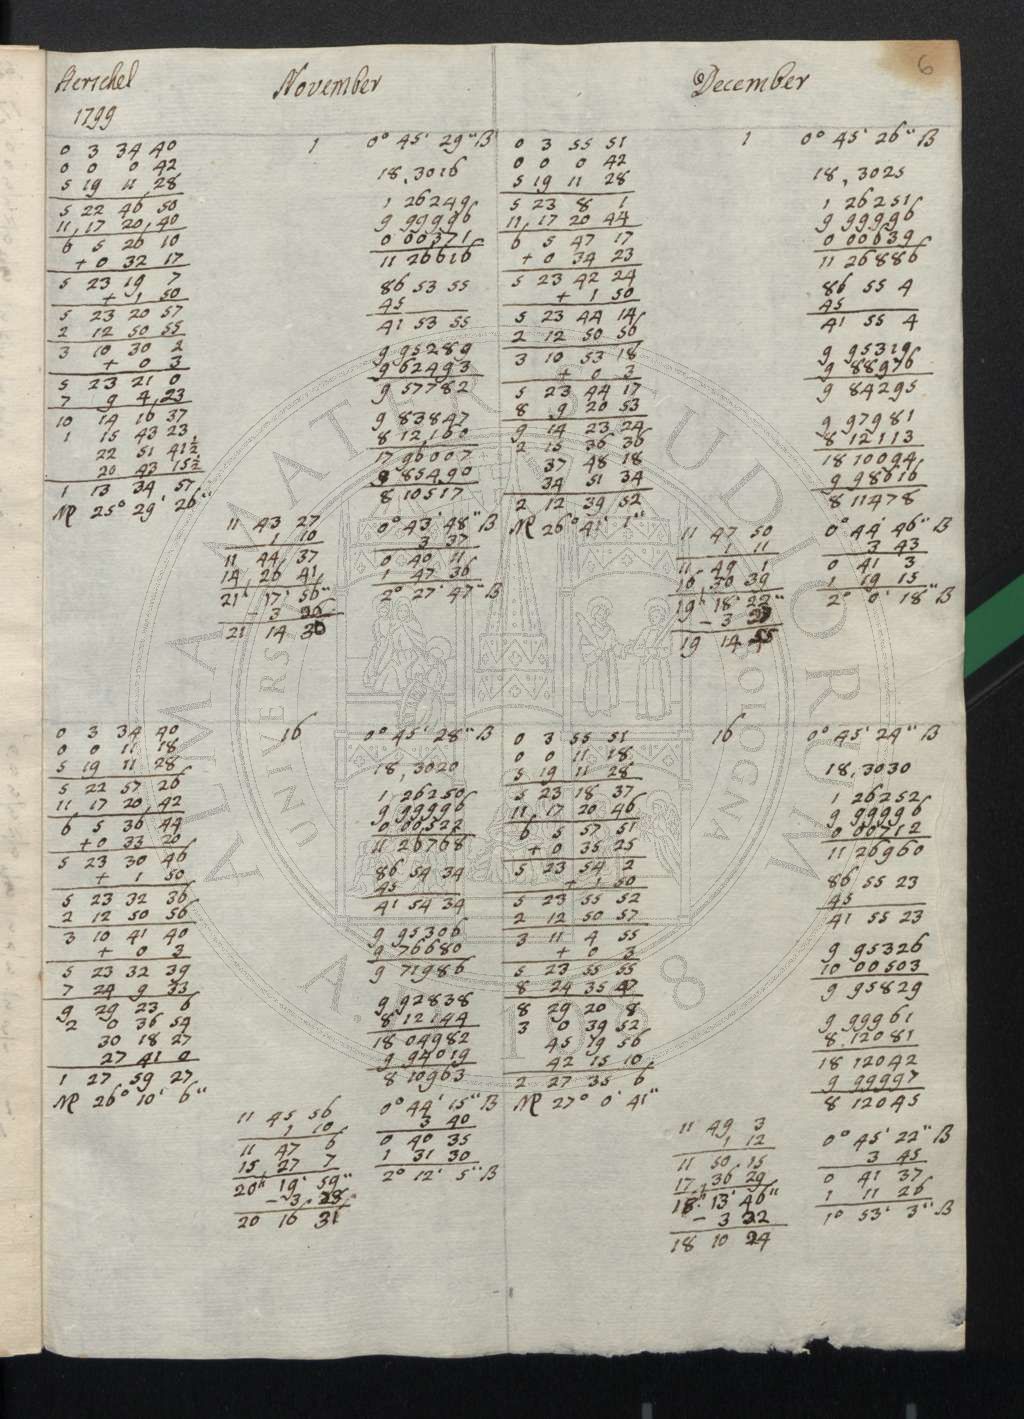 6
Herschel
1799
November
December
0 3 34 40
0 0 0 42
5 19 11 28
5 22 46 50
11 17 20 40
6 5 26 10
+ 0 32 17
5 23 19 7
+ 1 50
5 23 20 57
2 12 50 55
3 10 30 2
+ 0 3
5 23 21 0
7 9 4 23
10 14 16 37
1 15 43 23
22 51 41½
20 43 15½
1 13 34 57
♍ 25° 29' 26"
1
0° 45' 29" B
18,3016
1 26249
9 99996
0 00371
11 26616
86 53 55
45
41 53 55
9 95289
9 62493
9 57782
9 83847
8 12,160
17 96007
9 85490
8 10517
11 43 27
1 10
11 44 37
14 26 41
21h 17' 56"
- 3 26
21 14 30
0° 43' 48" B
3 37
0 40 11
1 47 36
2° 27' 47" B
0 3 55 51
0 0 0 42
5 19 11 28
5 23 8 1
11 17 20 44
6 5 47 17
+ 0 34 23
5 23 42 24
+ 1 50
5 23 44 14
2 12 50 56
3 10 53 18
+ 0 3
5 23 44 17
8 9 20 53
9 14 23 24
2 15 36 36
37 48 18
34 51 34
2 12 39 52
♍ 26° 41' 1"
1
0° 45' 26" B
18,3025
1 26251
9 99996
0 00639
11 26886
86 55 4
45
41 55 4
9 95319
9 88976
9 84295
9 97981
8 12113
18 10094
9 98616
8 11478
11 47 50
1 11
11 49 1
16 30 39
19h 18' 22"
- 3 27
19 14 55
0° 44' 46" B
3 43
0 41 3
1 19 15
2° 0' 18" B
0 3 34 40
0 0 11 18
5 19 11 28
5 22 57 26
11 17 20 42
6 5 36 44
+ 0 33 20
5 23 30 46
+ 1 50
5 23 32 36
2 12 50 56
3 10 41 40
+ 0 3
5 23 32 39
7 24 9 33
9 29 23 6
2 0 36 54
30 18 27
27 41 0
1 27 59 27
♍ 26° 10' 6"
16
0° 45' 28" B
18,3020
1 26250
9 99996
0 00522
11 26768
86 54 34
45
41 54 34
9 95306
9 76680
9 71986
9 92838
8 12144
18 04982
9 94019
8 10963
11 45 56
1 10
11 47 6
15 27 7
20h 19' 59"
- 3 28
20 16 31
0° 44' 15" B
3 40
0 40 35
1 31 30
2° 12' 5" B
0 3 55 51
0 0 11 18
5 19 11 28
5 23 18 37
11 17 20 46
6 5 57 51
+ 0 35 25
5 23 54 2
+ 1 50
5 23 55 52
2 12 50 57
3 11 4 55
+ 0 3
5 23 55 55
8 24 35 47
8 29 20 8
3 0 39 52
45 19 56
42 15 10
2 27 35 6
♍ 27° 0' 41"
16
0° 45' 24" B
18,3030
1 26252
9 99996
0 00712
11 26960
86 55 23
45
41 55 23
9 95326
10 00503
9 95829
9 99961
8 12081
18 12042
9 99997
8 12045
11 49 3
1 12
11 50 15
17 36 29
18h 13' 46"
- 3 22
18 10 24
0° 45' 22" B
3 45
0 41 37
1 11 26
1° 53' 3" B
ALMA MATER STUDIORUM
UNIVERSITÀ DI BOLOGNA
A.D. 1088